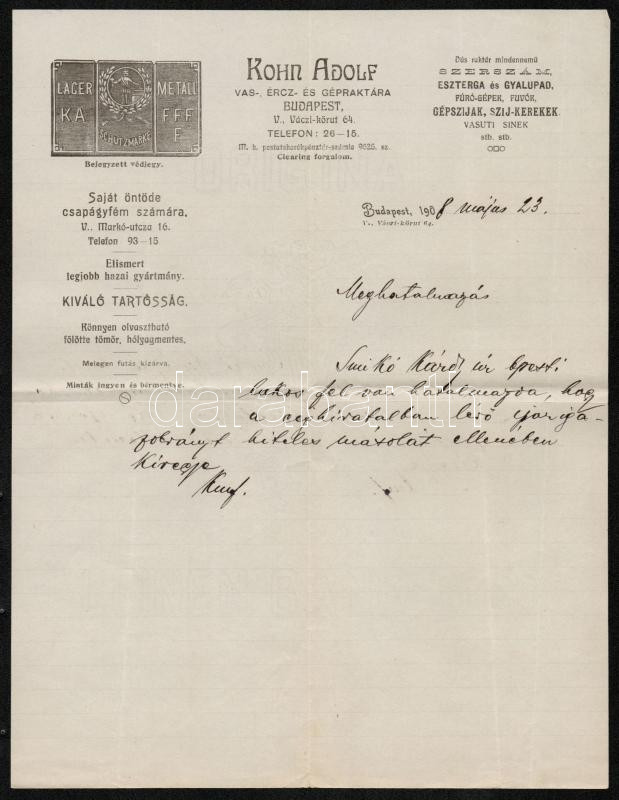 LAGER METALL
KA FFF
F
SCHUTZMARKE
Bejegyzett védjegy.
KOHN ADOLF
VAS-, ÉRCZ- ÉS GÉPRAKTÁRA
BUDAPEST,
V., Váczi-körut 64.
TELEFON: 26-15.
M. k. postatakarékpénztár-számla 9626. sz.
Clearing forgalom.
Dús raktár mindennemű
SZERSZÁM,
ESZTERGA és GYALUPAD,
FÚRÓ-GÉPEK, FUVÓK,
GÉPSZIJAK, SZIJ-KEREKEK
VASUTI SINEK
stb. stb.
Saját öntöde
csapágyfém számára,
V., Markó-utcza 16.
Telefon 93-15
Elismert
legjobb hazai gyártmány.
KIVÁLÓ TARTÓSSÁG.
Könnyen olvasztható
fölötte tömör, hólyagmentes.
Melegen futás kizárva.
Minták ingyen és bérmentve.
Budapest, 1908 május 23.
V., Váczi-körut 64.
Meghatalmazás
úr bpesti
lakos fel van hatalmazva, hogy
a céghivatalban lévő
hiteles másolát ellenében
kivegye
darabanth